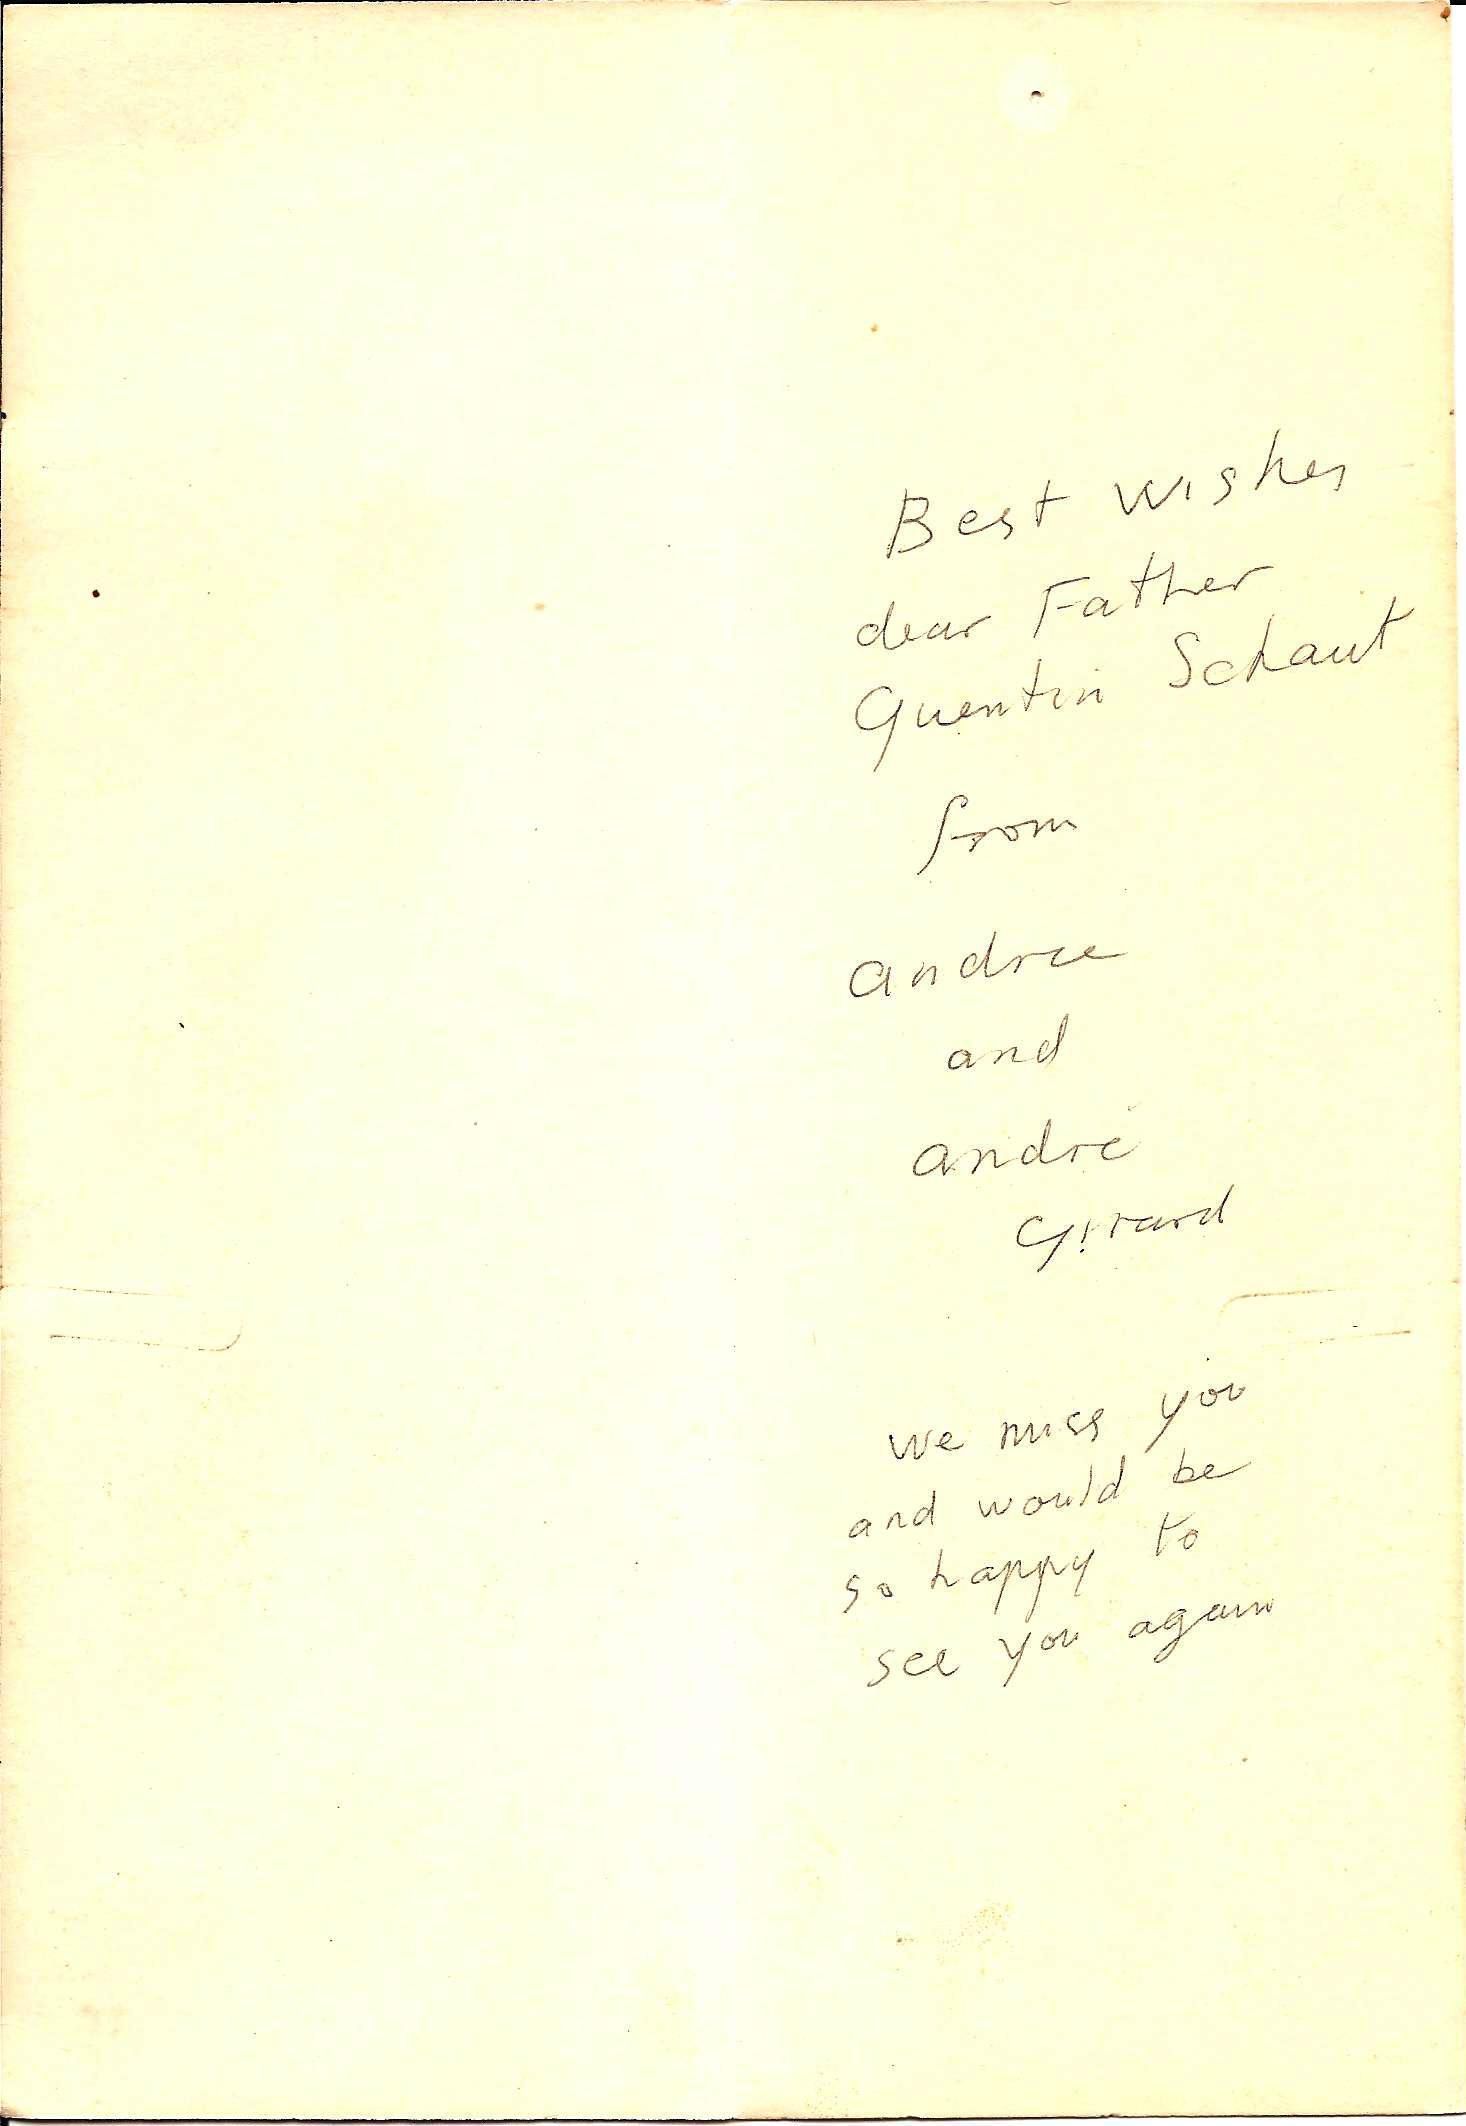 Best wishes
dear Father
Quentin Schaut
from
Andrée
and
André
Girard
We miss you
and would be
so happy to
see you again